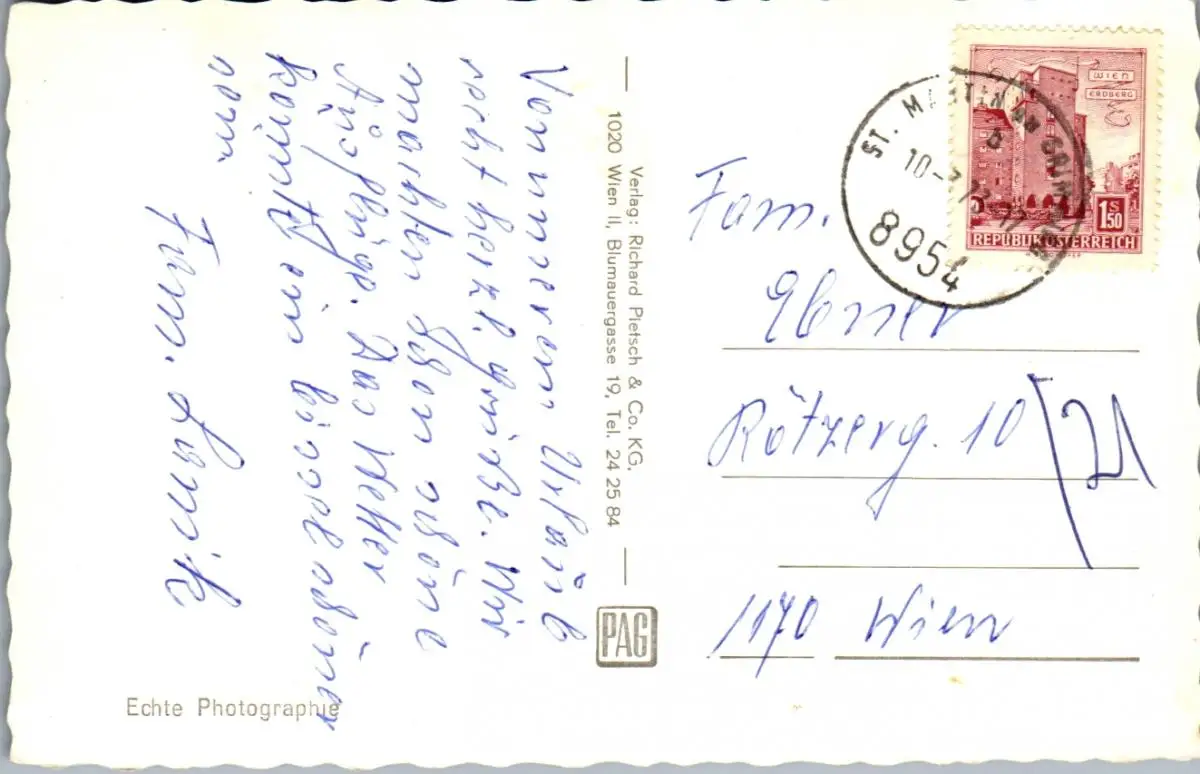 Von unserem Urlaub
recht herzl. Grüße. Wir
machten schon schöne
Ausflüge. Das Wetter
könnte ein bissel schöner
sein.
Fam.
Echte Photographie
Verlag: Richard Pietsch & Co. KG.
1020 Wien II, Blumauergasse 19, Tel. 24 25 84
PAG
WIEN
ERDBERG
1 S 50
REPUBLIK ÖSTERREICH
ST. MARTIN AM GRIMMING
8954
Fam.
Ebner
Rötzerg. 10/21
1170 Wien